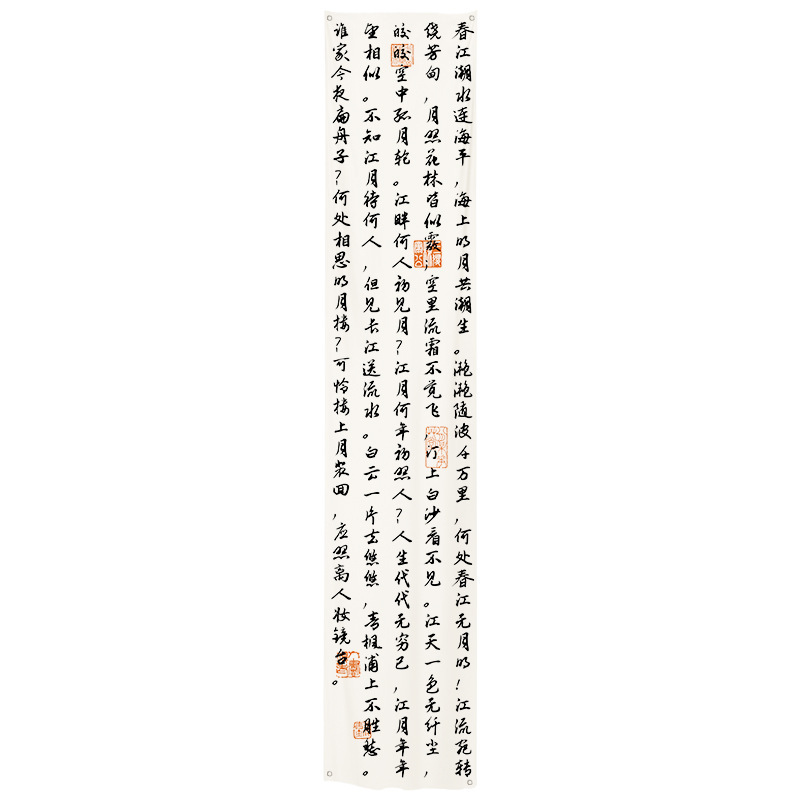 春江潮水连海平，海上明月共潮生。滟滟随波千万里，何处春江无月明！江流宛转
绕芳甸，月照花林皆似霰；空里流霜不觉飞，汀上白沙看不见。江天一色无纤尘，
皎皎空中孤月轮。江畔何人初见月？江月何年初照人？人生代代无穷已，江月年年
望相似。不知江月待何人，但见长江送流水。白云一片去悠悠，青枫浦上不胜愁。
谁家今夜扁舟子？何处相思明月楼？可怜楼上月裴回，应照离人妆镜台。